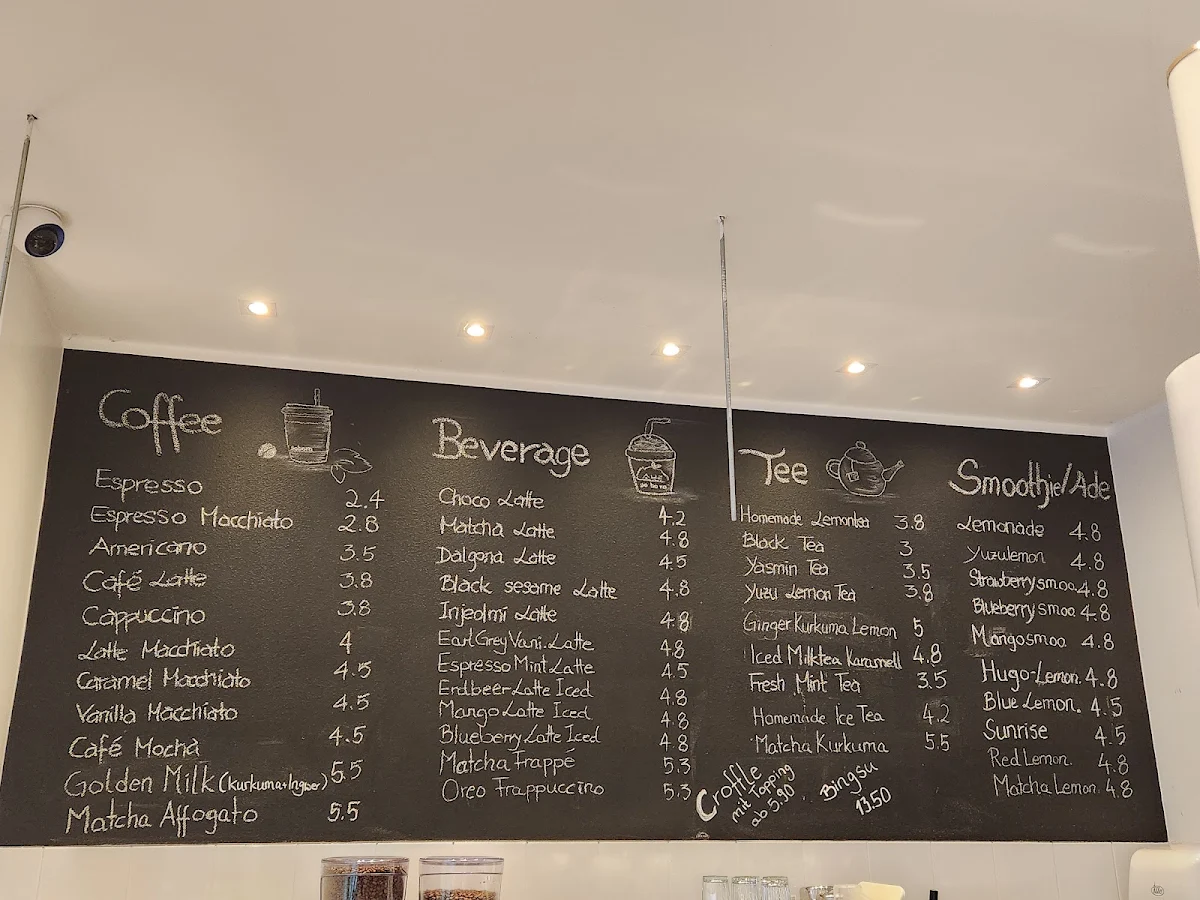 Coffee
Espresso 2.4
Espresso Macchiato 2.8
Americano 3.5
Café Latte 3.8
Cappuccino 3.8
Latte Macchiato 4
Caramel Macchiato 4.5
Vanilla Macchiato 4.5
Café Mocha 4.5
Golden Milk (Kurkuma+Ingwer) 5.5
Matcha Affogato 5.5
Beverage
Choco Latte 4.2
Matcha Latte 4.8
Dalgona Latte 4.5
Black sesame Latte 4.8
Injeolmi Latte 4.8
Earl Grey Vani. Latte 4.8
Espresso Mint Latte 4.5
Erdbeer Latte Iced 4.8
Mango Latte Iced 4.8
Blueberry Latte Iced 4.8
Matcha Frappé 5.3
Oreo Frappuccino 5.3
Tee
Homemade Lemontea 3.8
Black Tea 3
Yasmin Tea 3.5
Yuzu Lemon Tea 3.8
Ginger Kurkuma Lemon 5
Iced Milktea Karamell 4.8
Fresh Mint Tea 3.5
Homemade Ice Tea 4.2
Matcha Kurkuma 5.5
Croffle
mit Topping
ab 5.90
Bingsu
13.50
Smoothie/Ade
Lemonade 4.8
Yuzulemon 4.8
Strawberrysmoo 4.8
Blueberrysmoo 4.8
Mangosmoo 4.8
Hugo-Lemon. 4.8
Blue Lemon. 4.5
Sunrise 4.5
Red Lemon. 4.8
Matcha Lemon. 4.8